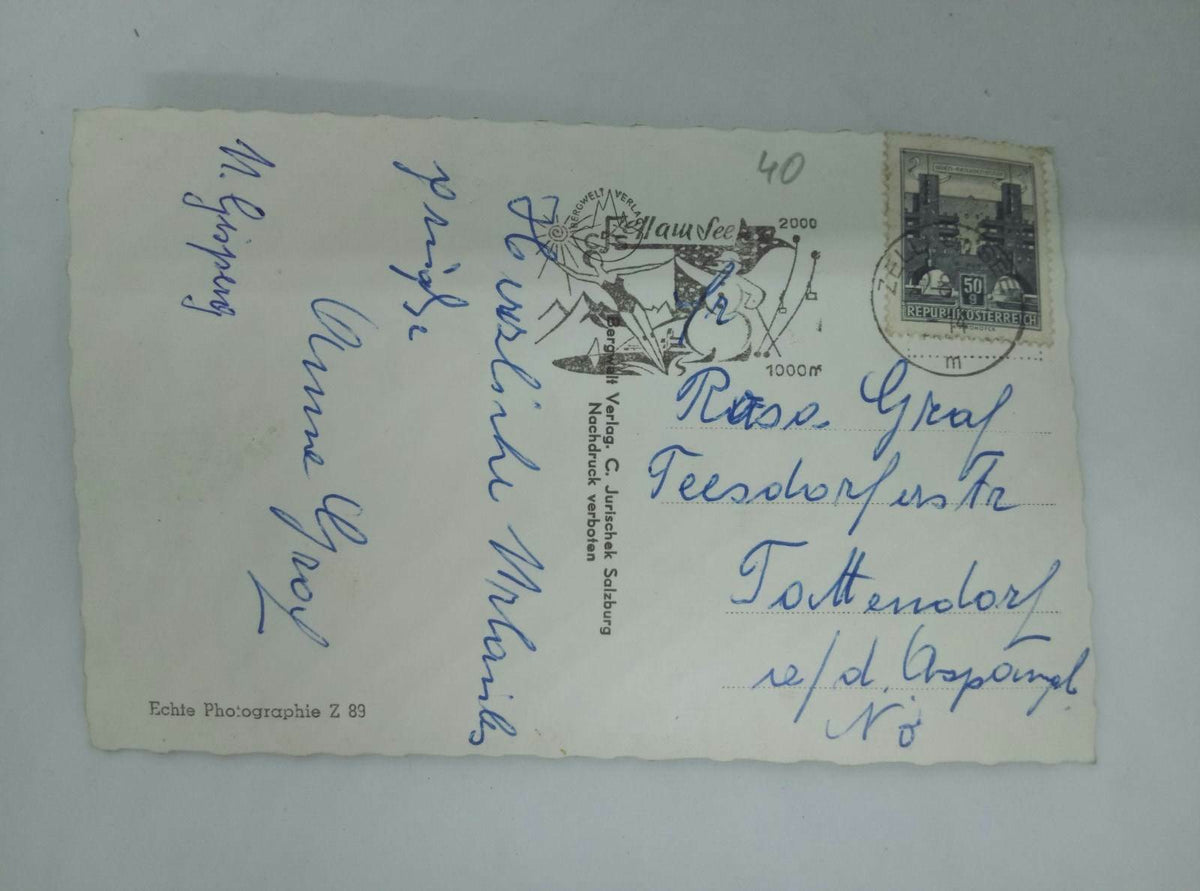 Herzliche Urlaubs
grüße
Anna Graf
40
BERGWELT VERLAG
Zell am See
2000
1000m
ZELL
m
50
g
REPUBLIK ÖSTERREICH
Fr
Rosa Graf
Teesdorferstr
Tattendorf
a/d. Aspangb.
NÖ
Bergwelt Verlag. C. Jurischek Salzburg
Nachdruck verboten
Echte Photographie Z 89